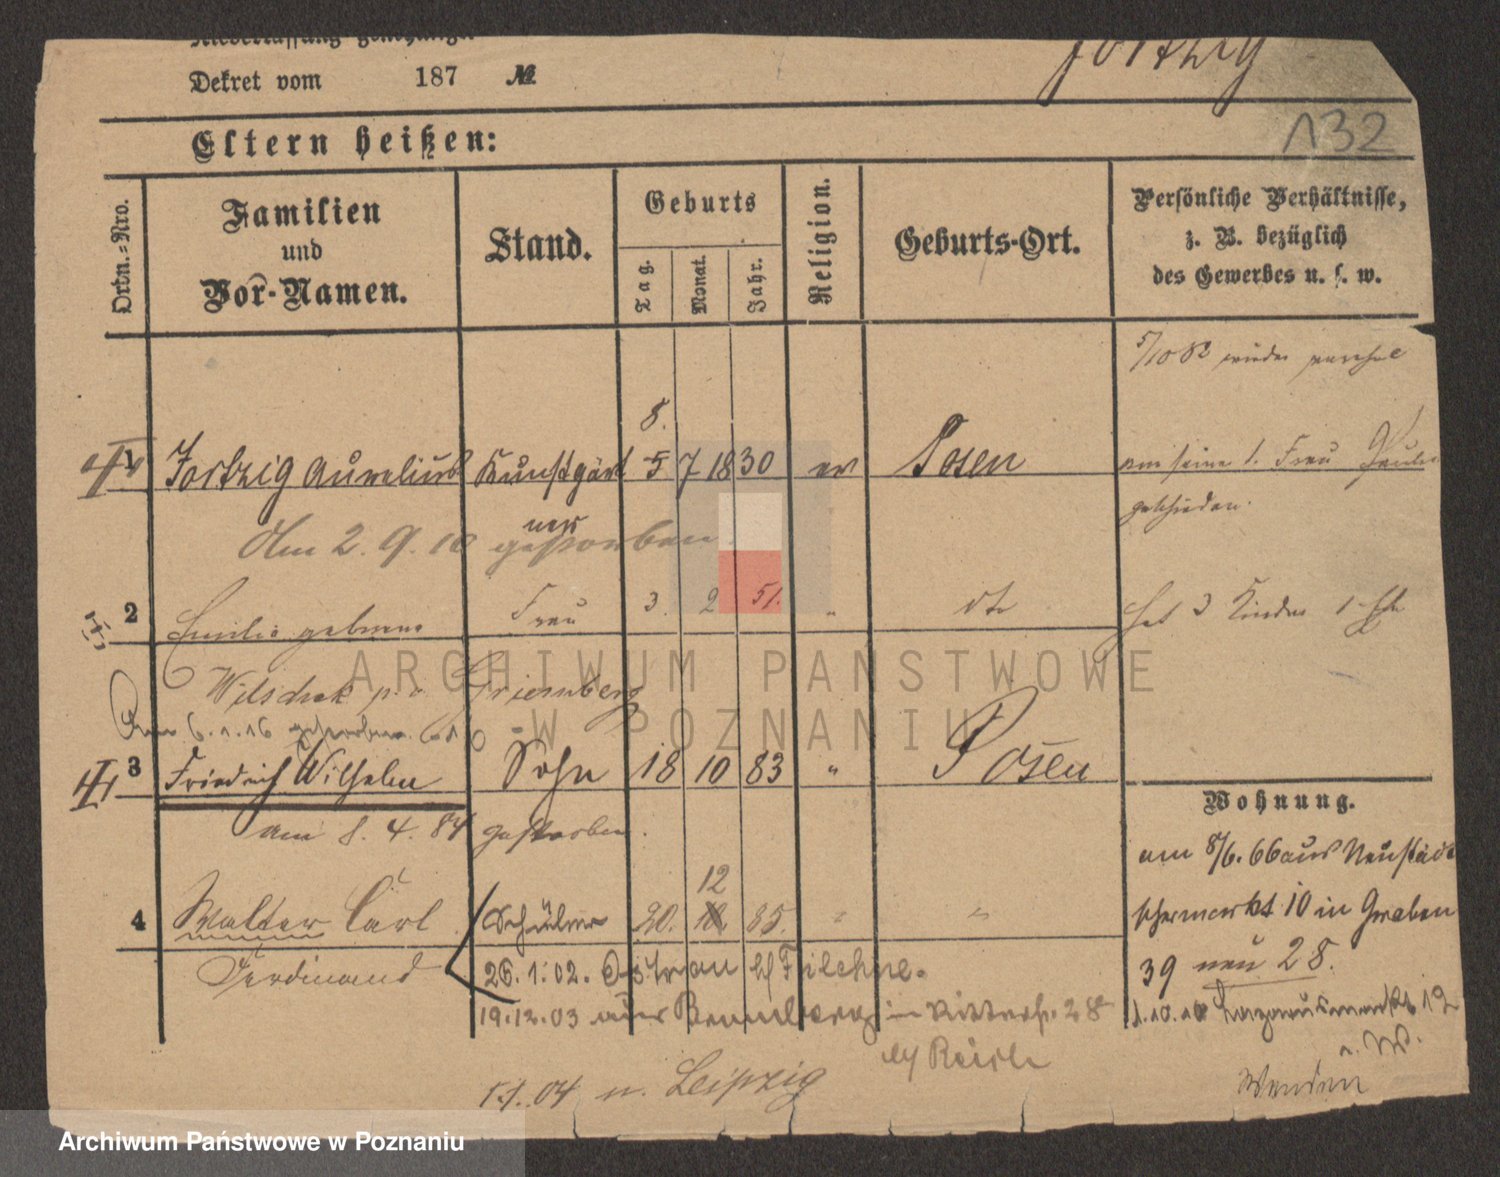 Niederlassung genehmigt
Jortzig
Dekret vom 187 №
132
Eltern heißen:
Ordn.-Nro.
Familien
und
Vor-Namen.
Stand.
Geburts
Tag.
Monat.
Jahr.
Religion.
Geburts-Ort.
Persönliche Verhältnisse,
z. B. bezüglich
des Gewerbes u. s. w.
5/10 82 wieder
8.
1 Jortzig Aurelius Kunstgärt 5 7 1830 ev Posen
von seiner 1. Frau
ner
geschieden.
Am 2. 9. 10 gestorben.
2 Emilie geborene Frau 3. 2 51. " dto
hat 3 Kinder 1. Ehe
Wilschek p. v. Griesenberg
Am 6. 1. 16 gestorben.
3 Friedrich Wilhelm Sohn 18 10 83 " Posen
Wohnung.
am 8. 4. 84 gestorben.
am 8/6. 66 aus Neustädt
12
4 Walter Carl Schüler 20. 10 85. " "
schermarkt 10 in Graben
Ferdinand
26. 1. 02. Ostrau b/ Filehne.
39 neu 28.
19. 12. 03 aus Bromberg in Ritterstr. 28
1. 10. 10 Lazarusmarkt 12
b/ Reich
1.1. 04 n. Leipzig
Wenden
ARCHIWUM PAŃSTWOWE
W POZNANIU
Archiwum Państwowe w Poznaniu